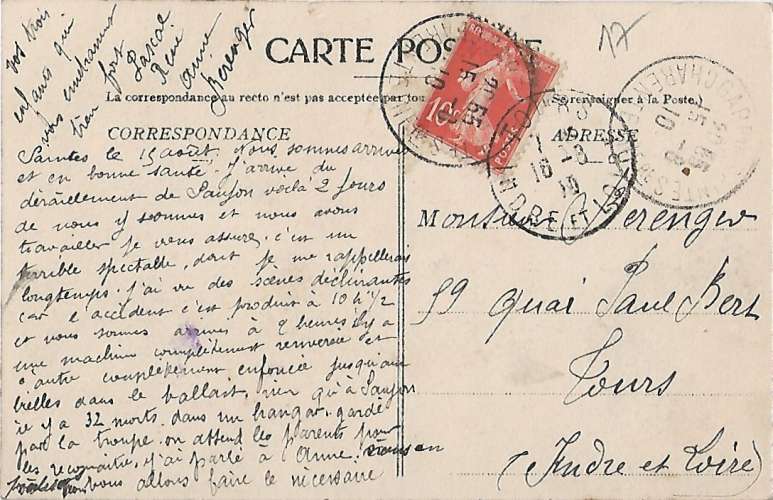 CARTE POSTALE
La correspondance au recto n'est pas acceptée par tou
Se renseigner à la Poste.
CORRESPONDANCE
ADRESSE
17
Saintes le 15 août. Nous sommes arrivé
et en bonne santé. J'arrive du
déraillement de Saujon voclà 2 jours
de nous y sommes et nous avons
travailler je vous assure, c'est un
terrible spectable, dont je me rappellerais
longtemps. j'ai vu des scènes déchirantes
car l'accident c'est produit à 10 h 1/2
et nous sommes arrivés à 2 heures il y a
une machine complètement renversée et
l'autre complètement enfoncée jusqu'au
bielles dans le ballast, rien qu'à Saujon
il y a 32 morts dans un hangar, gardé
par la troupe, on attend les parents pour
les reconnaitre, j'ai parlé à Anne
nous allons faire le nécessaire
vos trois
enfants qui
vous embrasses
bien fort
Pascal
René
Anne
Berenger
Monsieur Berenger
59 Quai Paul Bert
Tours
(Indre et Loire)
10c
16-8
10
INDRE ET LOIRE